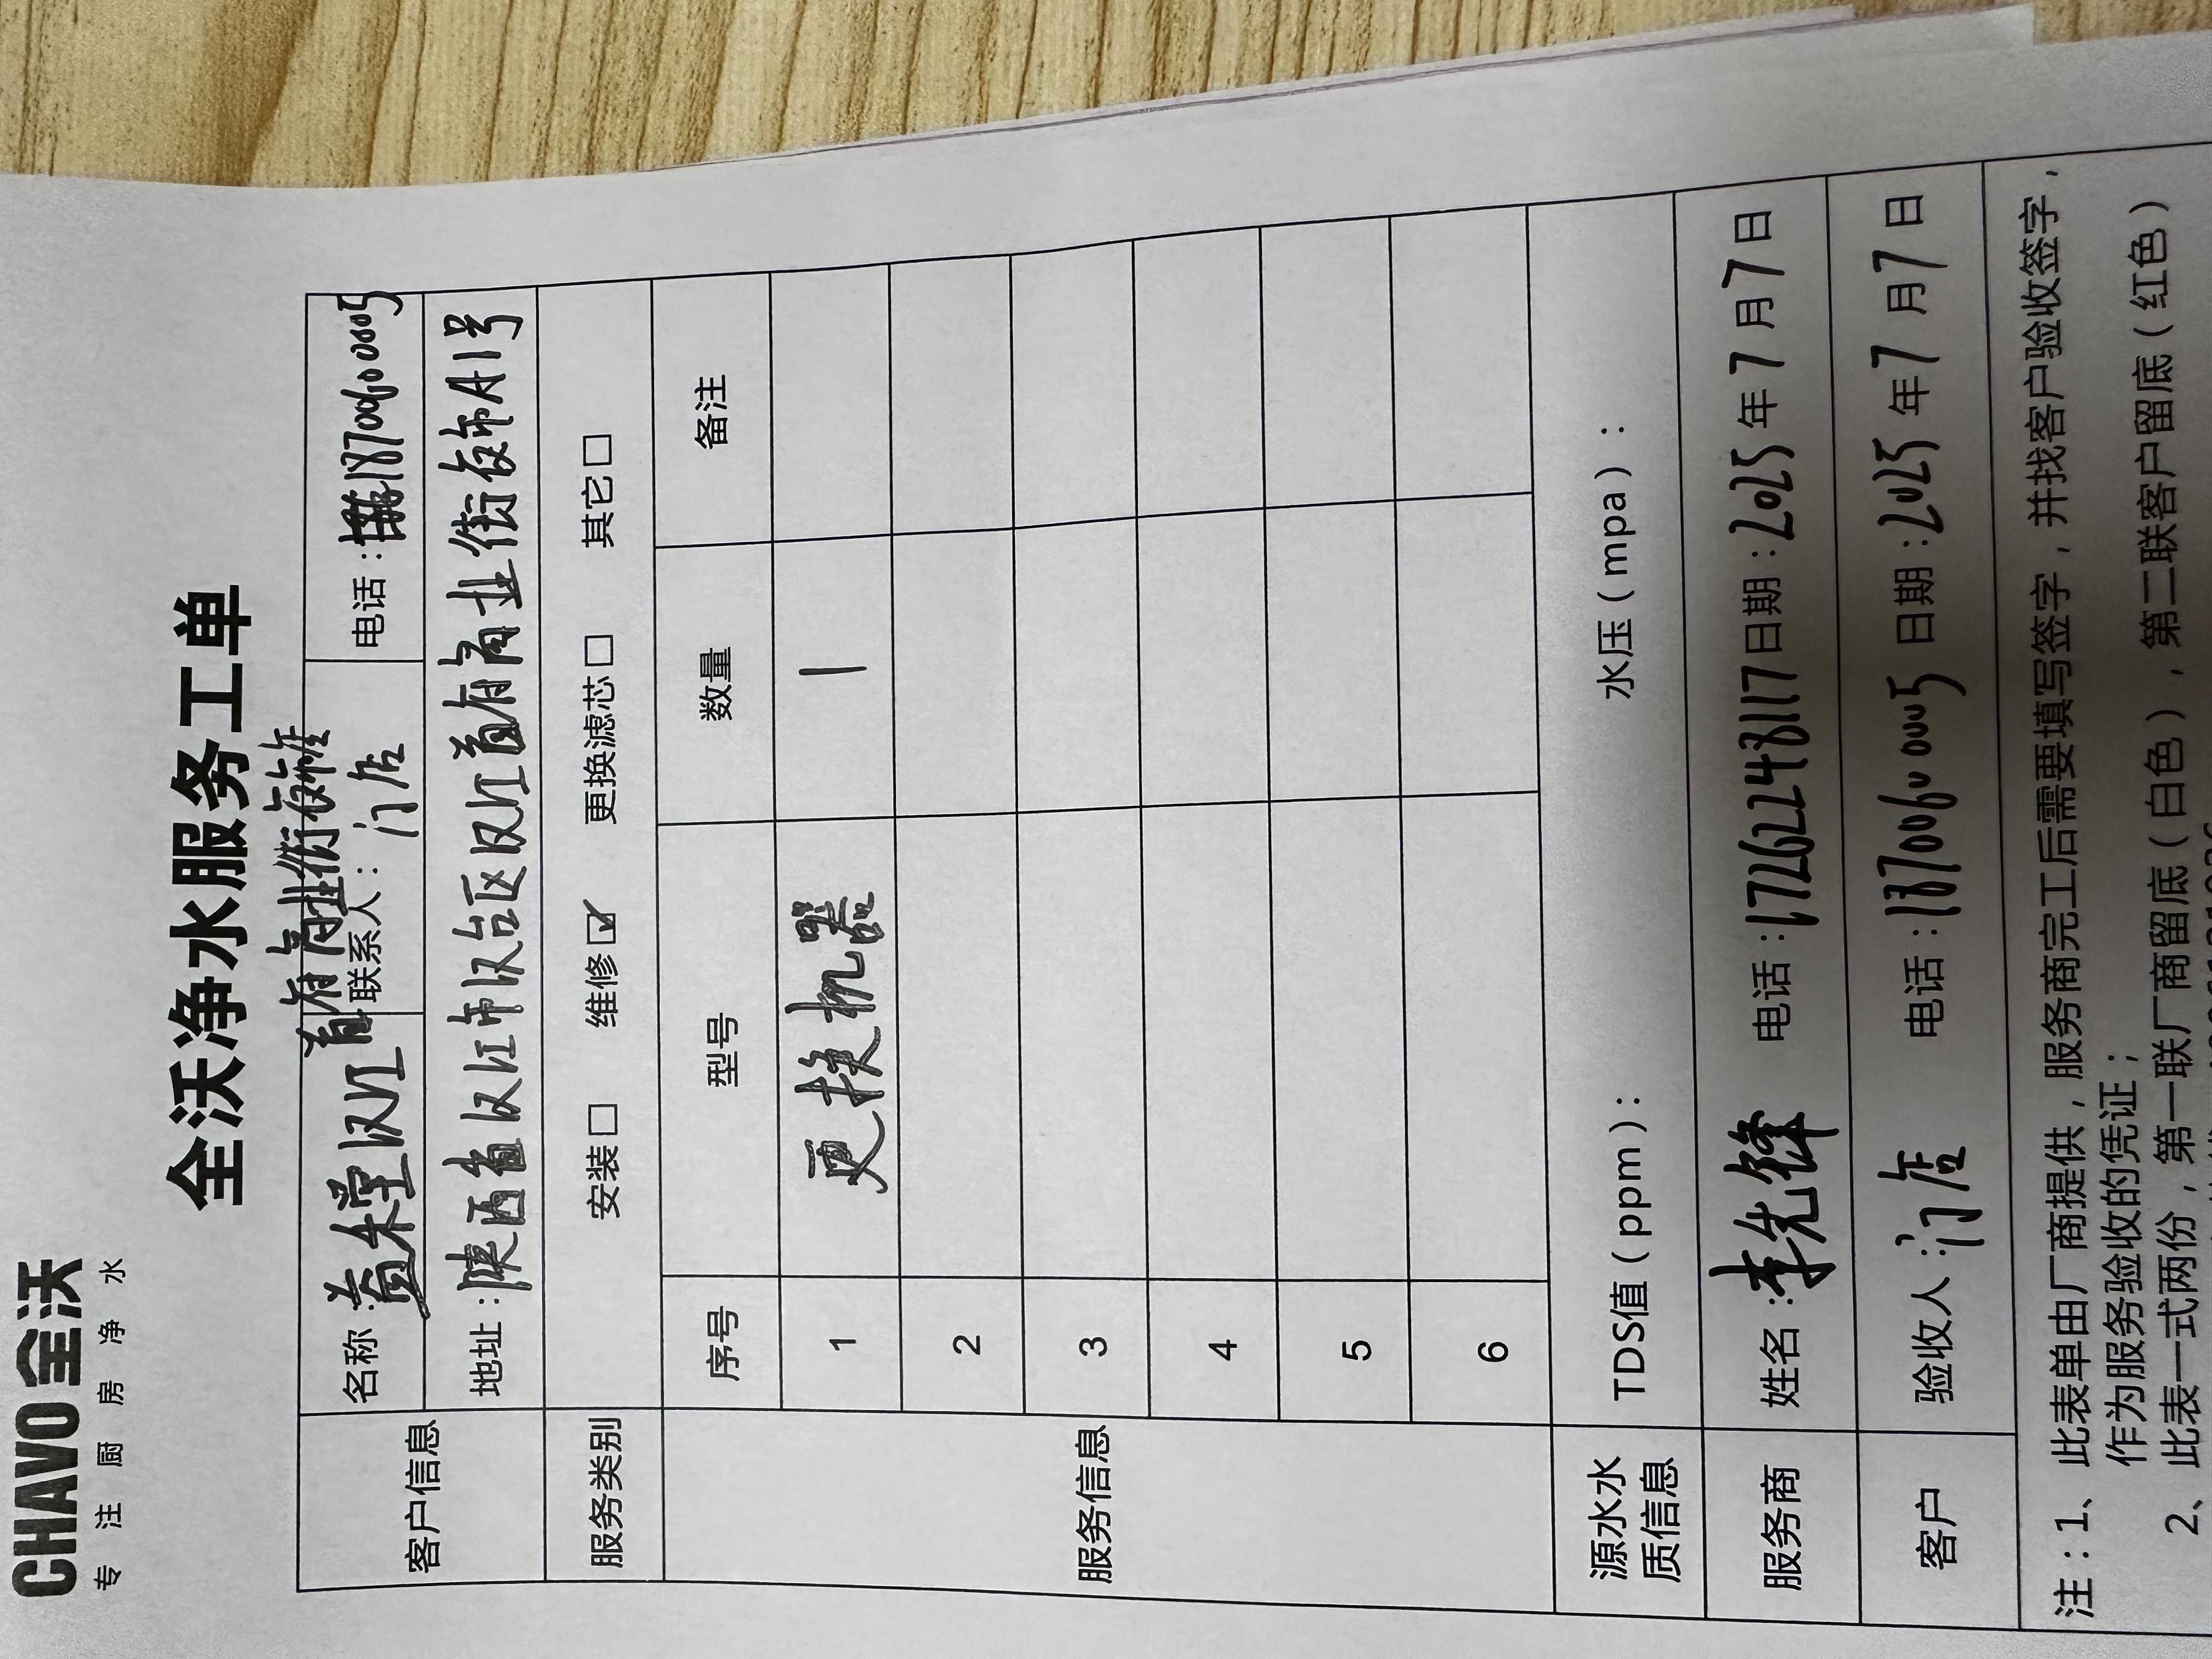 CHAVO 全沃
专注厨房净水
全沃净水服务工单
客户信息
名称: 首府商业街
联系人: 门店
电话: 18700600005
地址: 陕西省汉江市汉台区汉江首府商业街A1号
服务类别
安装□ 维修☑ 更换滤芯□ 其它□
服务信息
序号 型号 数量 备注
1 更换机器 1
2
3
4
5
6
源水水质信息
TDS值(ppm): 水压(mpa):
服务商
姓名: 李先锋 电话: 17262248117 日期: 2025年7月7日
客户
验收人: 门店 电话: 18700600005 日期: 2025年7月7日
注: 1、此表单由厂商提供,服务商完工后需要填写签字,并找客户验收签字,
作为服务验收的凭证;
2、此表一式两份,第一联厂商留底(白色),第二联客户留底(红色)